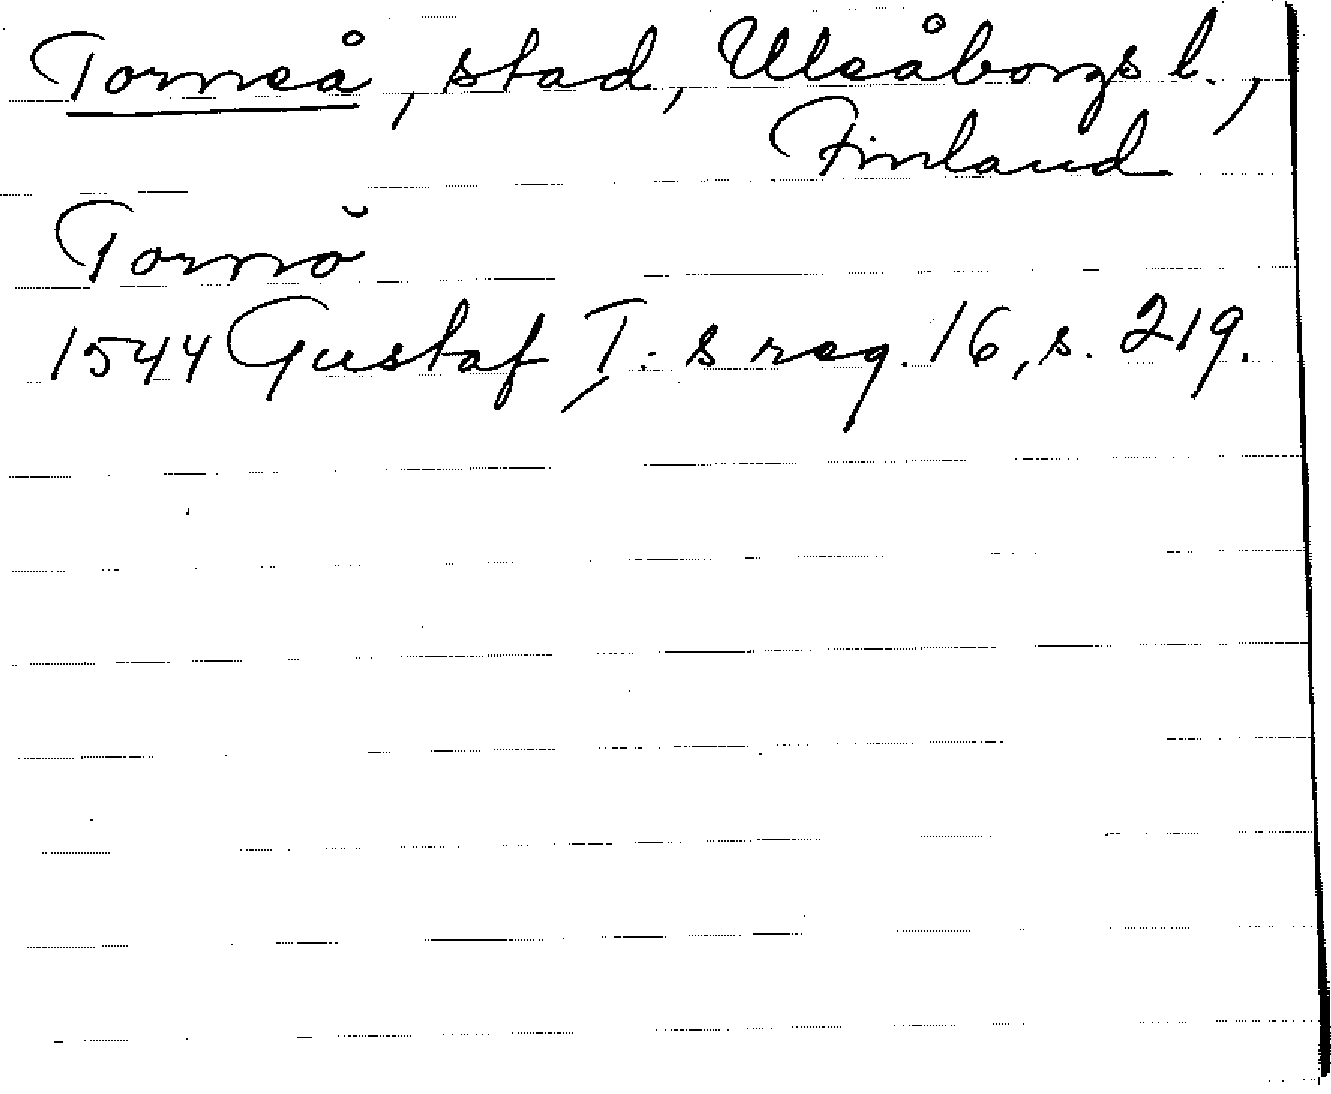 Torneå, stad, Uleåborgs l.,
Finland
Tornö
1544 Gustaf I:s reg. 16, s. 219.